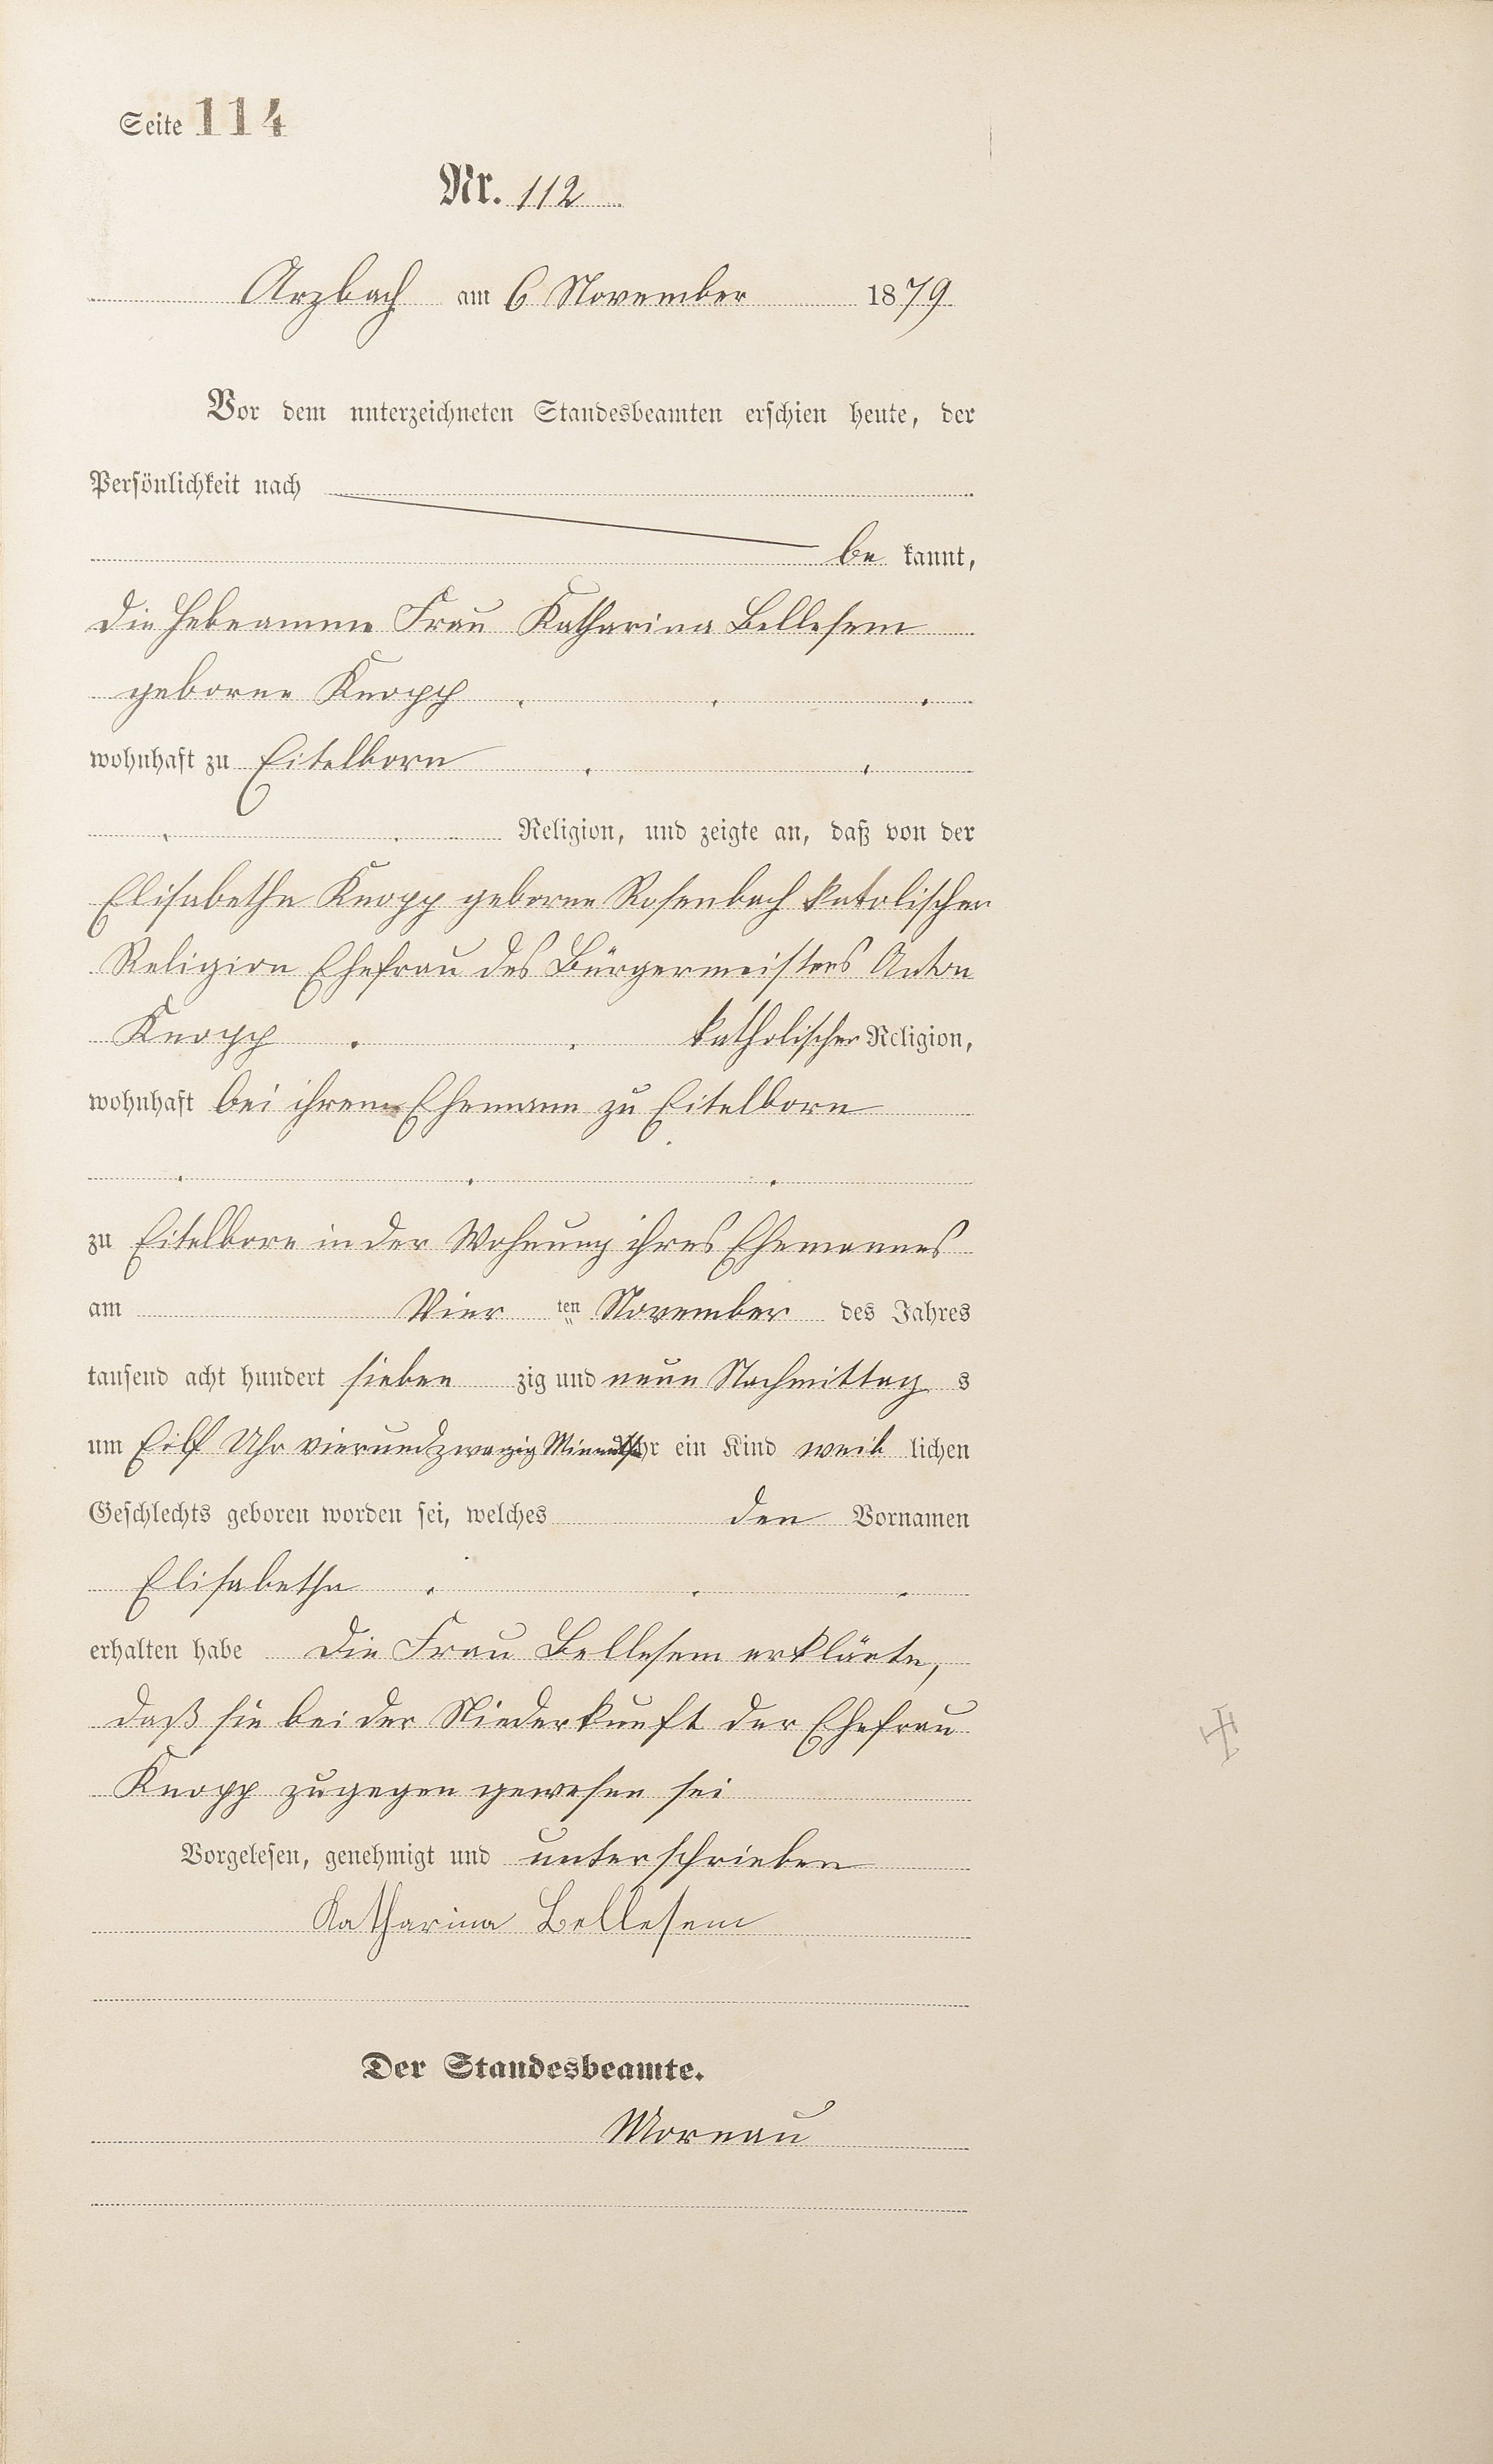 Seite 114
Nr. 112
Arzbach am 6 November 1879
Vor dem unterzeichneten Standesbeamten erschien heute, der
Persönlichkeit nach
be kannt,
die Hebeamme Frau Katharina Bellesem
geborne Knopp
wohnhaft zu Eitelborn
Religion, und zeigte an, daß von der
Elisabetha Knopp geborne Rosenbach katolischer
Religion Ehefrau des Bürgermeisters Anton
Knopp katholischer Religion,
wohnhaft bei ihrem Ehemann zu Eitelborn
zu Eitelborn in der Wohnung ihres Ehemannes
am Vier ten November des Jahres
tausend acht hundert sieben zig und neun Nachmittag s
um Eilf Uhr vierundzwanzig Minuten Uhr ein Kind weib lichen
Geschlechts geboren worden sei, welches den Vornamen
Elisabetha
erhalten habe Die Frau Bellesem erklärte,
daß sie bei der Niederkunft der Ehefrau
Knopp zugegen gewesen sei
Vorgelesen, genehmigt und unterschrieben
Katharina Bellesem
Der Standesbeamte.
Moreau